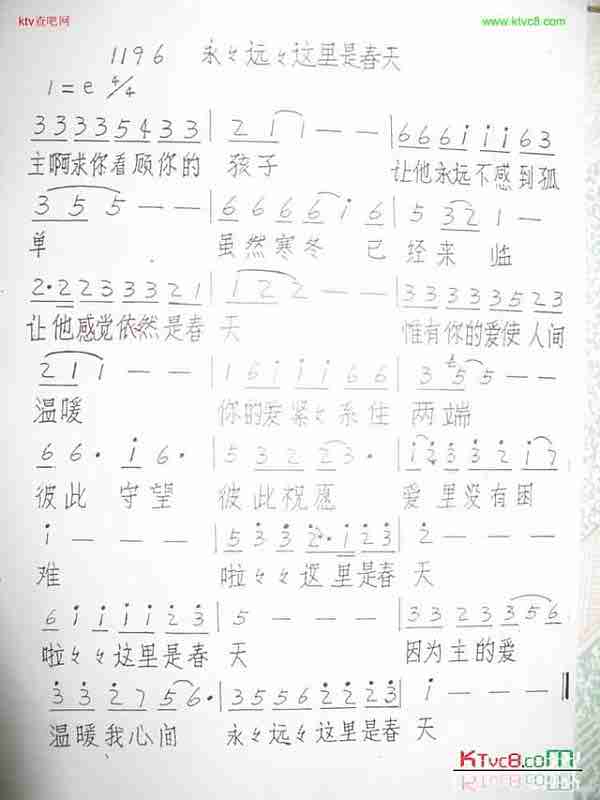 ktv查吧网
www.ktvc8.com
1196 永々远々这里是春天
1=e 4/4
3 3 3 3 5 4 3 3 | 2 1 1 — — | 6 6 6 i i i 6 3
主啊求你看顾你的 孩子 让他永远不感到孤
3 5 5 — — | 6 6 6 6 i 6 | 5 3 2 1 —
单 虽然寒冬 已 经来 临
2· 2 2 3 3 3 2 1 | 1 2 2 — — | 3 3 3 3 3 5 2 3
让他感觉依然是春 天 惟有你的爱使人间
2 1 1 — — | 1 6 i i i 6 6 | 3 5 5 — —
温暖 你的爱紧々系住 两端
6 6· i 6· | 5 3 2 2 3· | i 2 3 3 2 i 7
彼此 守望 彼此祝愿 爱里没有困
i — — — | 5 3 3 2· i 2 3 | 2 — — —
难 啦々々这里是春 天
6 i i i i 2 3 | 5 — — — | 3 3 2 3 3 5 6
啦々々这里是春 天 因为主的爱
3 3 2 7 5 6· | 3 5 5 6 2 2 2 3 | i — — —
温暖我心间 永々远々这里是春 天
KTvc8.com